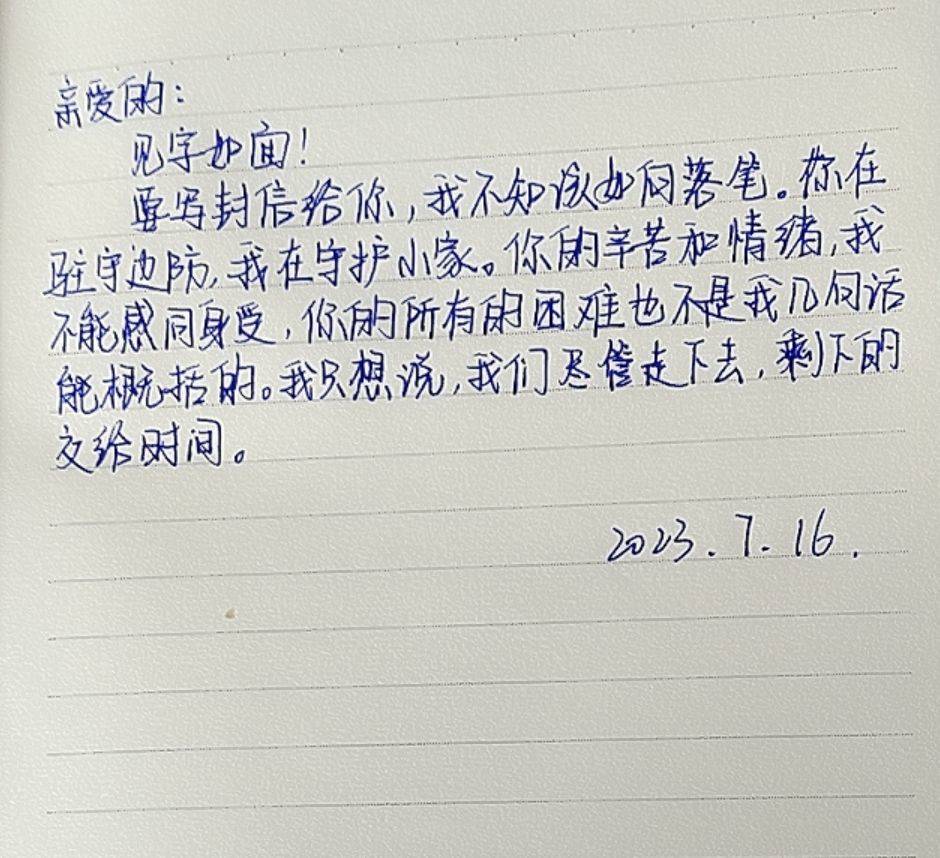 亲爱的：
见字如面！
要写封信给你，我不知该如何落笔。你在
驻守边防，我在守护小家。你的辛苦和情绪，我
不能感同身受，你的所有的困难也不是我几句话
能概括的。我只想说，我们尽管走下去，剩下的
交给时间。
2023.7.16.